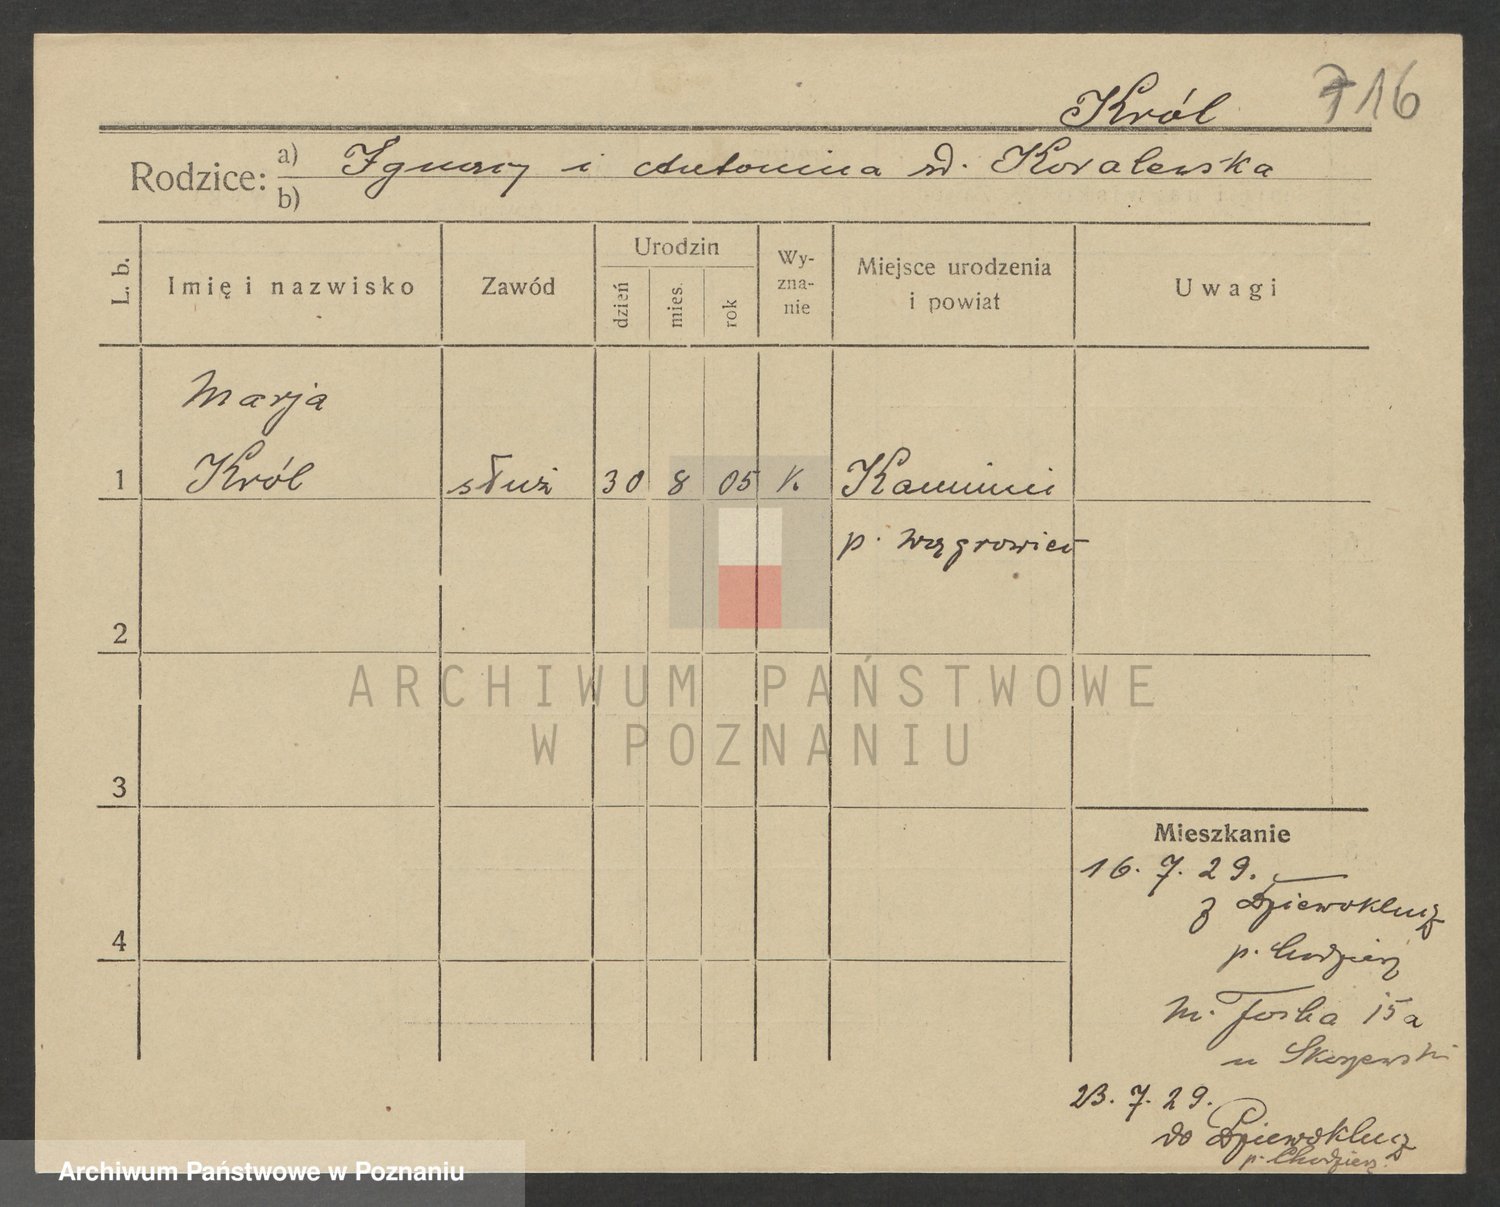 Król 716
Rodzice: a) Ignacy i Antonina rd. Kovalewska
b)
L. b.
Imię i nazwisko
Zawód
Urodzin
dzień
mies.
rok
Wy-
zna-
nie
Miejsce urodzenia
i powiat
Uwagi
Marja
1 Król służ 30 8 05 k. Kaminiec
p. Wągrowiec
2
ARCHIWUM PAŃSTWOWE
W POZNANIU
3
Mieszkanie
16. 7. 29.
z Dziewoklucz
p. Chodzież
4
m. 15a
u
23. 7. 29.
do Dziewoklucz
p. Chodzież
Archiwum Państwowe w Poznaniu